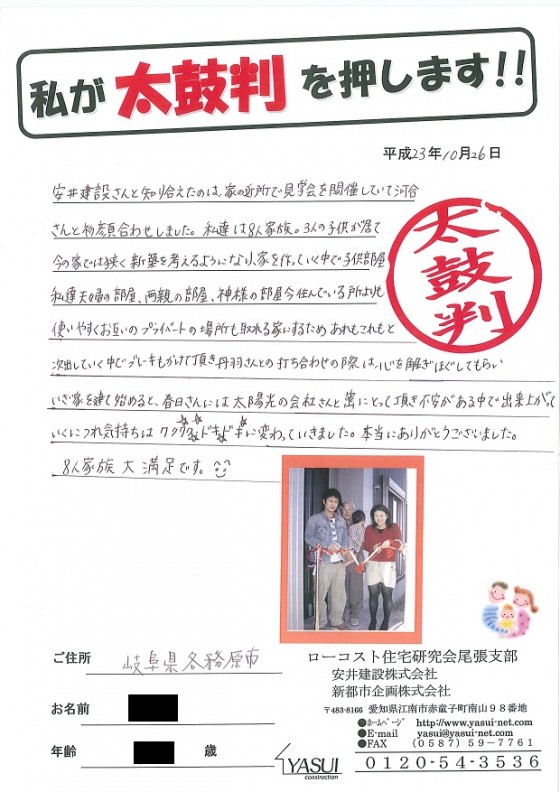 私が太鼓判を押します!!
平成23年10月26日
安井建設さんと知り合えたのは、家の近所で見学会を開催していて河合
さんと初顔合わせしました。私達は8人家族。3人の子供が居て
今の家では狭く新築を考えるようになり、家を作っていく中で子供部屋
私達夫婦の部屋、両親の部屋、神様の部屋今住んでいる所よりも
使いやすくお互いのプライバートの場所も取れる家にするためあれもこれもと
次出していく中でブレーキもかけて頂き丹羽さんとの打ち合わせの際は、心を解きほぐしてもらい
いざ家を建て始めると、春日さんには太陽光の会社さんと密にとって頂き不安がある中で出来上がって
いくにつれ気持ちはワクワクドキドキに変わっていきました。本当にありがとうございました。
8人家族大満足です。
太鼓判
ご住所 岐阜県各務原市
お名前
年齢 歳
YASUI
construction
ローコスト住宅研究会尾張支部
安井建設株式会社
新都市企画株式会社
〒483-8166 愛知県江南市赤童子町南山98番地
●ホームページ http://www.yasui-net.com
●E-mail yasui@yasui-net.com
●FAX (0587)59-7761
0120-54-3536